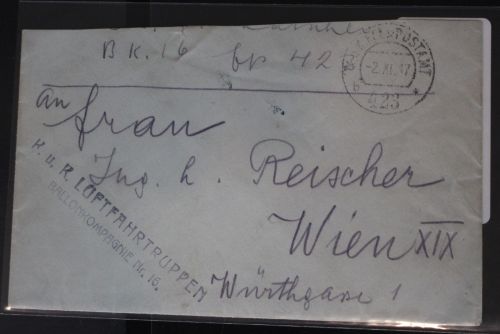 BK. 16 fp 42
K.u.K. FELDPOSTAMT
-2.XI.17
b *
423
An
Frau
Ing. L. Reischer
Wien XIX
Würthgasse 1
K. u. K. LUFTFAHRTRUPPEN
BALLONKOMPAGNIE Nr. 16.